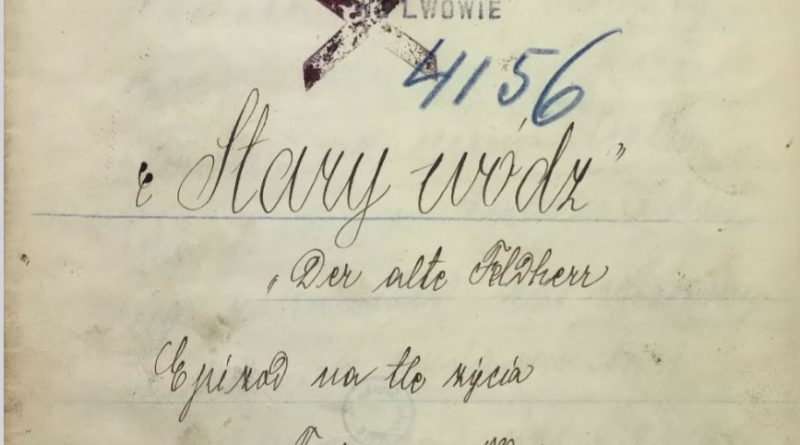 WE LWOWIE
4156
„Stary wódz"
„Der alte Feldherr
Epizod na tle życia